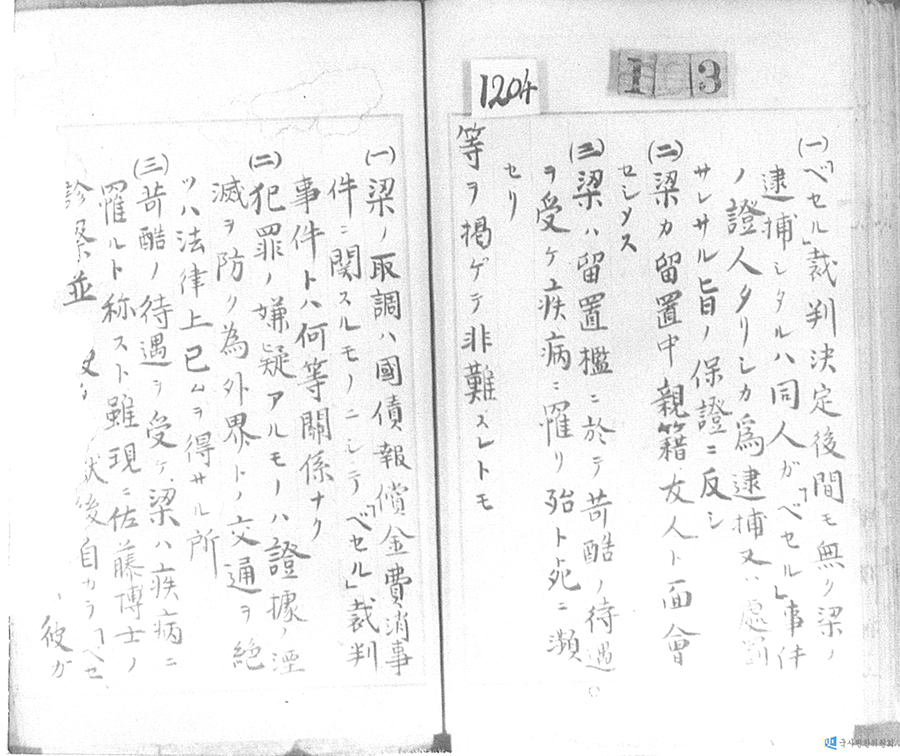 1204
1 3
(一)「ベセル」裁判決定後間モ無ク梁ノ
逮捕シタルハ同人ガ「ベセル」事件
ノ證人タリシカ為逮捕又ハ處罰
サレサル旨ノ保證ニ反シ
(二)梁カ留置中親籍、友人ト面會
セシメス
(三)梁ハ留置檻ニ於テ苛酷ノ待遇
ヲ受ケ疾病ニ罹リ殆ト死ニ瀕
セリ
等ヲ掲ゲテ非難スレトモ
(一)梁ノ取調ハ國債報償金費消事
件ニ関スルモノニシテ「ベセル」裁判
事件トハ何等關係ナク
(二)犯罪ノ嫌疑アルモノハ證據ノ湮
滅ヲ防ク為外界トノ交通ヲ絶
ツハ法律上已ムヲ得サル所
(三)苛酷ノ待遇ヲ受ケ梁ハ疾病ニ
罹ルト称スト雖現ニ佐藤博士ノ
診察並
後自カラ「ベセ
彼ガ
국사편찬위원회